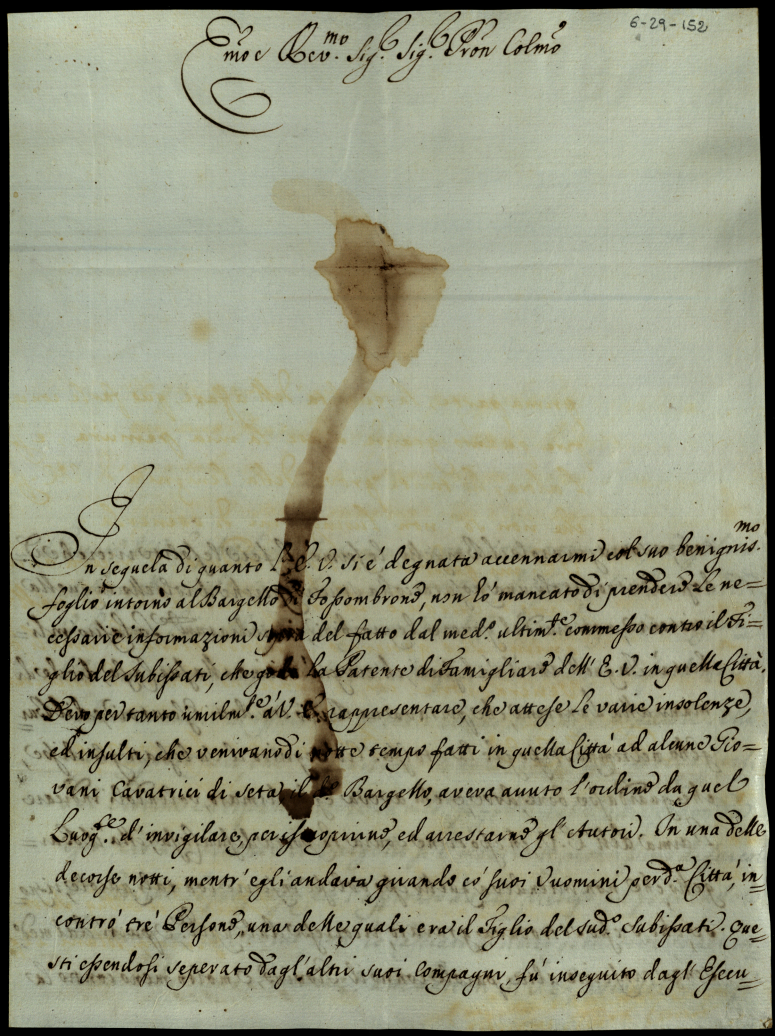 6-29-152
Emo e Revmo. Sig.r Sig.r Pron Colmo
In seguela di quanto l'E. V. si é degnata accennarmi col suo benignis.mo
foglio intorno al Bargello di Fossombrone, non hò mancato di prendere le ne=
cessarie informazioni sopra del fatto dal med.o ultim.te commesso contro il Fi=
glio del Subissati, che gode la Patente di Famigliare dell' E. V. in quella Città.
Devo per tanto umilm.e a V. E. rappresentare, che attese le varie insolenze,
ed insulti, che venivano di notte tempo fatti in quella Città ad alcune Gio=
vani Cavatrici di seta il d.o Bargello, aveva avuto l'ordine da quel
Luog.te d'invigilare, per iscoprirne, ed arrestarne gl'Autori. In una delle
decorse notti, mentr'egli andava girando có suoi Uomini per d.a Città, in=
contró tré Persone, una delle quali era il Figlio del sud.o Subissati. Que=
sti essendosi seperato dagl'altri suoi Compagni, fú inseguito dagl'Esecu=